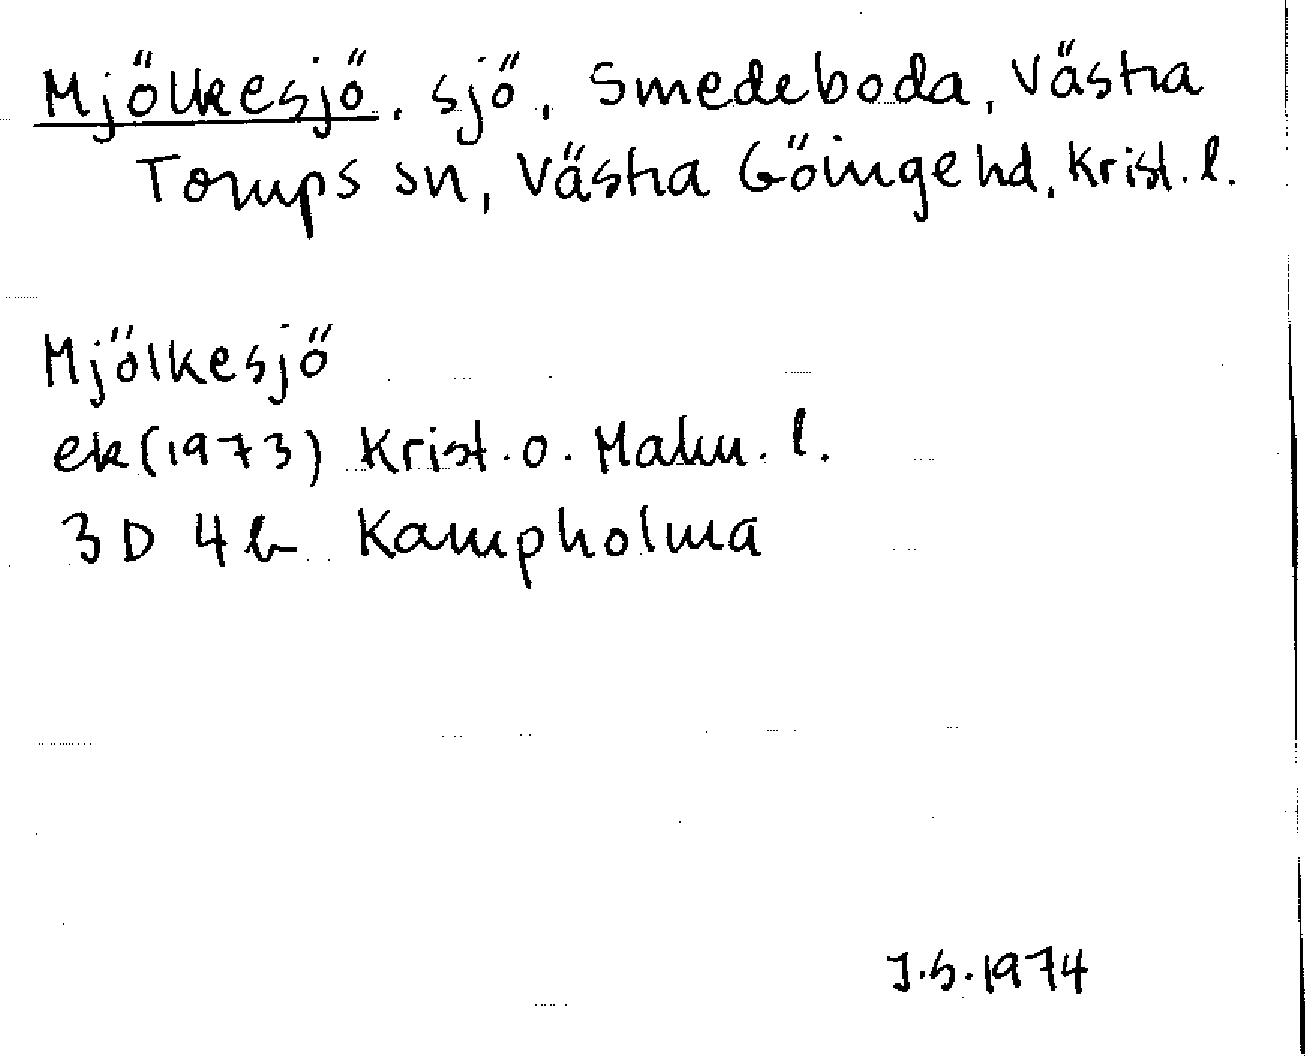 Mjölkesjö, sjö, Smedeboda, Västra
Torups sn, Västra Göinge hd, Krist. l.
Mjölkesjö
ek(1973) Krist. o. Malm. l.
3D 4b Kampholma
I.S. 1974